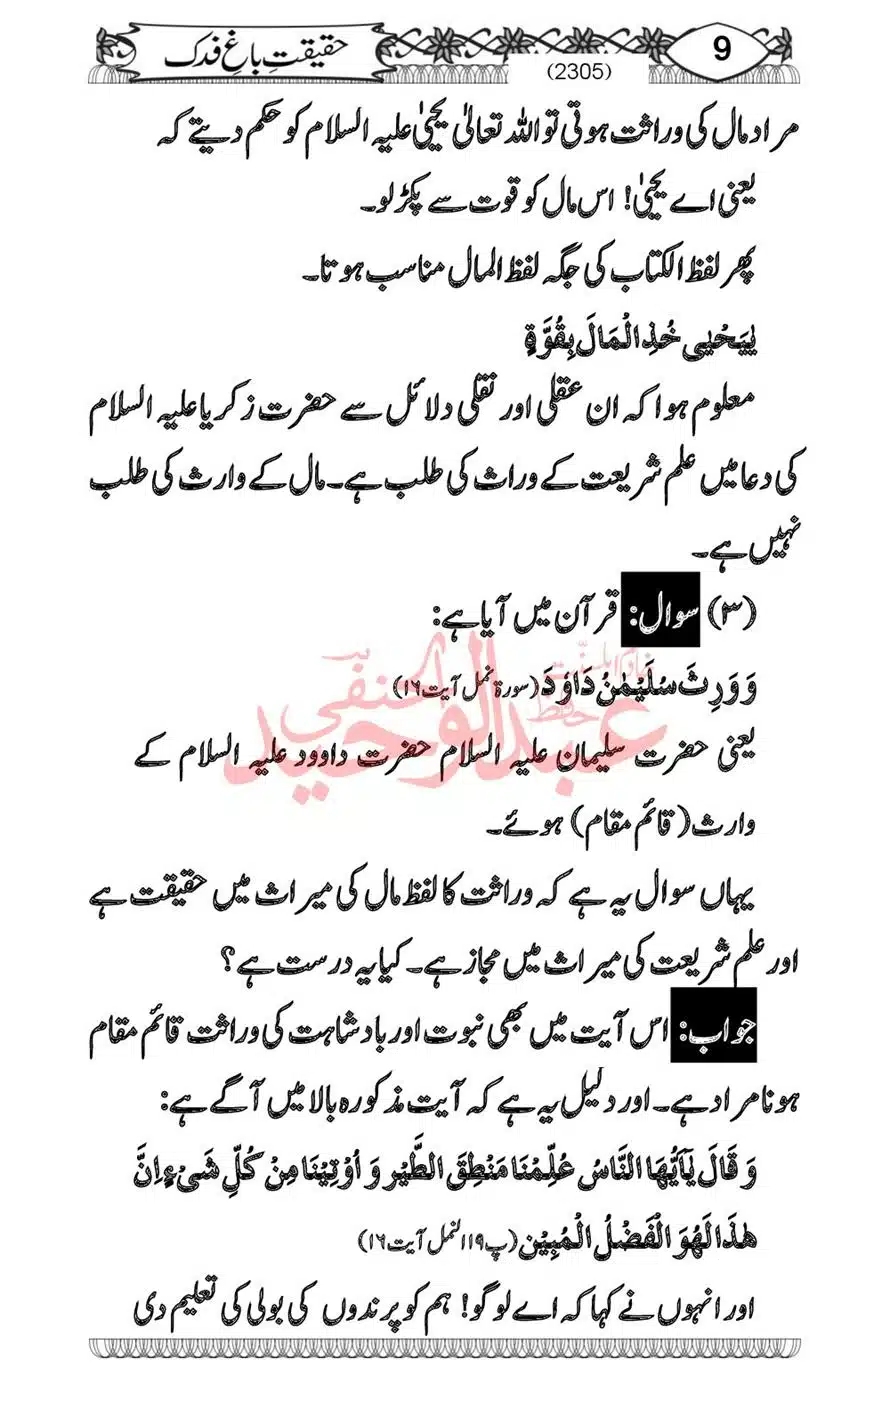 حقیقتِ باغِ فدک
(2305)
9
مراد مال کی وراثت ہوتی تو اللہ تعالیٰ یحییٰ علیہ السلام کو حکم دیتے کہ
یعنی اے یحییٰ! اس مال کو قوت سے پکڑ لو۔
پھر لفظ الکتاب کی جگہ لفظ المال مناسب ہوتا۔
یٰیَحْیٰی خُذِ الْمَالَ بِقُوَّۃٍ
معلوم ہوا کہ ان عقلی اور نقلی دلائل سے حضرت زکریا علیہ السلام
کی دعا میں علم شریعت کے وراث کی طلب ہے۔ مال کے وارث کی طلب
نہیں ہے۔
(۳) سوال: قرآن میں آیا ہے:
وَ وَرِثَ سُلَیْمٰنُ دَاوٗدَ (سورۃ نمل آیت ۱۶)
خادم اہلسنت
حافظ عبدالوحید الحنفی
یعنی حضرت سلیمان علیہ السلام حضرت داوود علیہ السلام کے
وارث (قائم مقام) ہوئے۔
یہاں سوال یہ ہے کہ وراثت کا لفظ مال کی میراث میں حقیقت ہے
اور علم شریعت کی میراث میں مجاز ہے۔ کیا یہ درست ہے؟
جواب: اس آیت میں بھی نبوت اور بادشاہت کی وراثت قائم مقام
ہونا مراد ہے۔ اور دلیل یہ ہے کہ آیت مذکورہ بالا میں آگے ہے:
وَ قَالَ یٰۤاَیُّهَا النَّاسُ عُلِّمْنَا مَنْطِقَ الطَّیْرِ وَ اُوْتِیْنَا مِنْ کُلِّ شَیْءٍ اِنَّ
هٰذَا لَهُوَ الْفَضْلُ الْمُبِیْن (پ ۱۹ النمل آیت ۱۶)
اور انہوں نے کہا کہ اے لوگو! ہم کو پرندوں کی بولی کی تعلیم دی